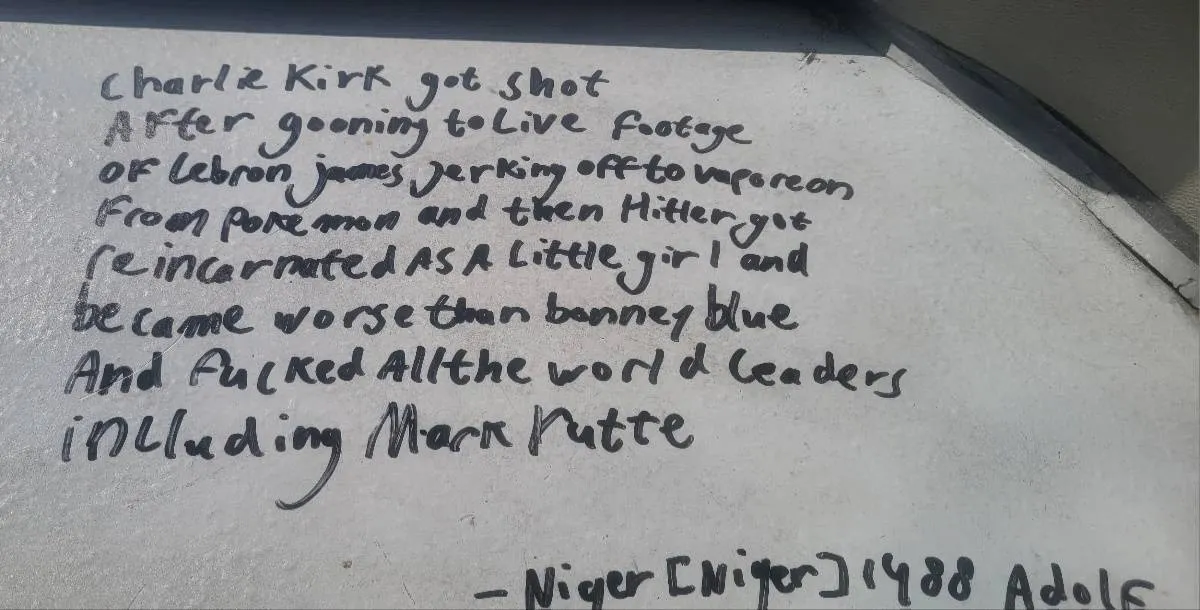 Charlie Kirk got shot
After gooning to Live footage
OF Lebron james jerking off to vaporeon
From pokemon and then Hitler got
reincarnated AS A Little girl and
became worse than bonney blue
And fucked All the world leaders
inclluding Mark rutte
- Niger [Niger] 1488 Adolf